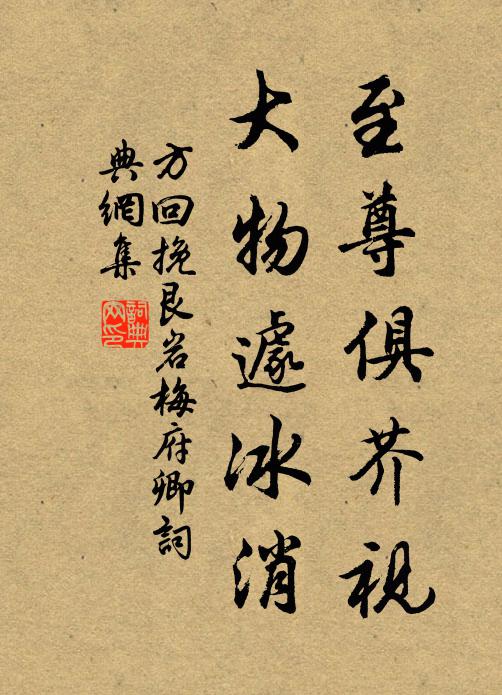 至尊俱芥視
大物遽冰消
方回挽艮岩梅府卿詞
典網集
詞典
网印